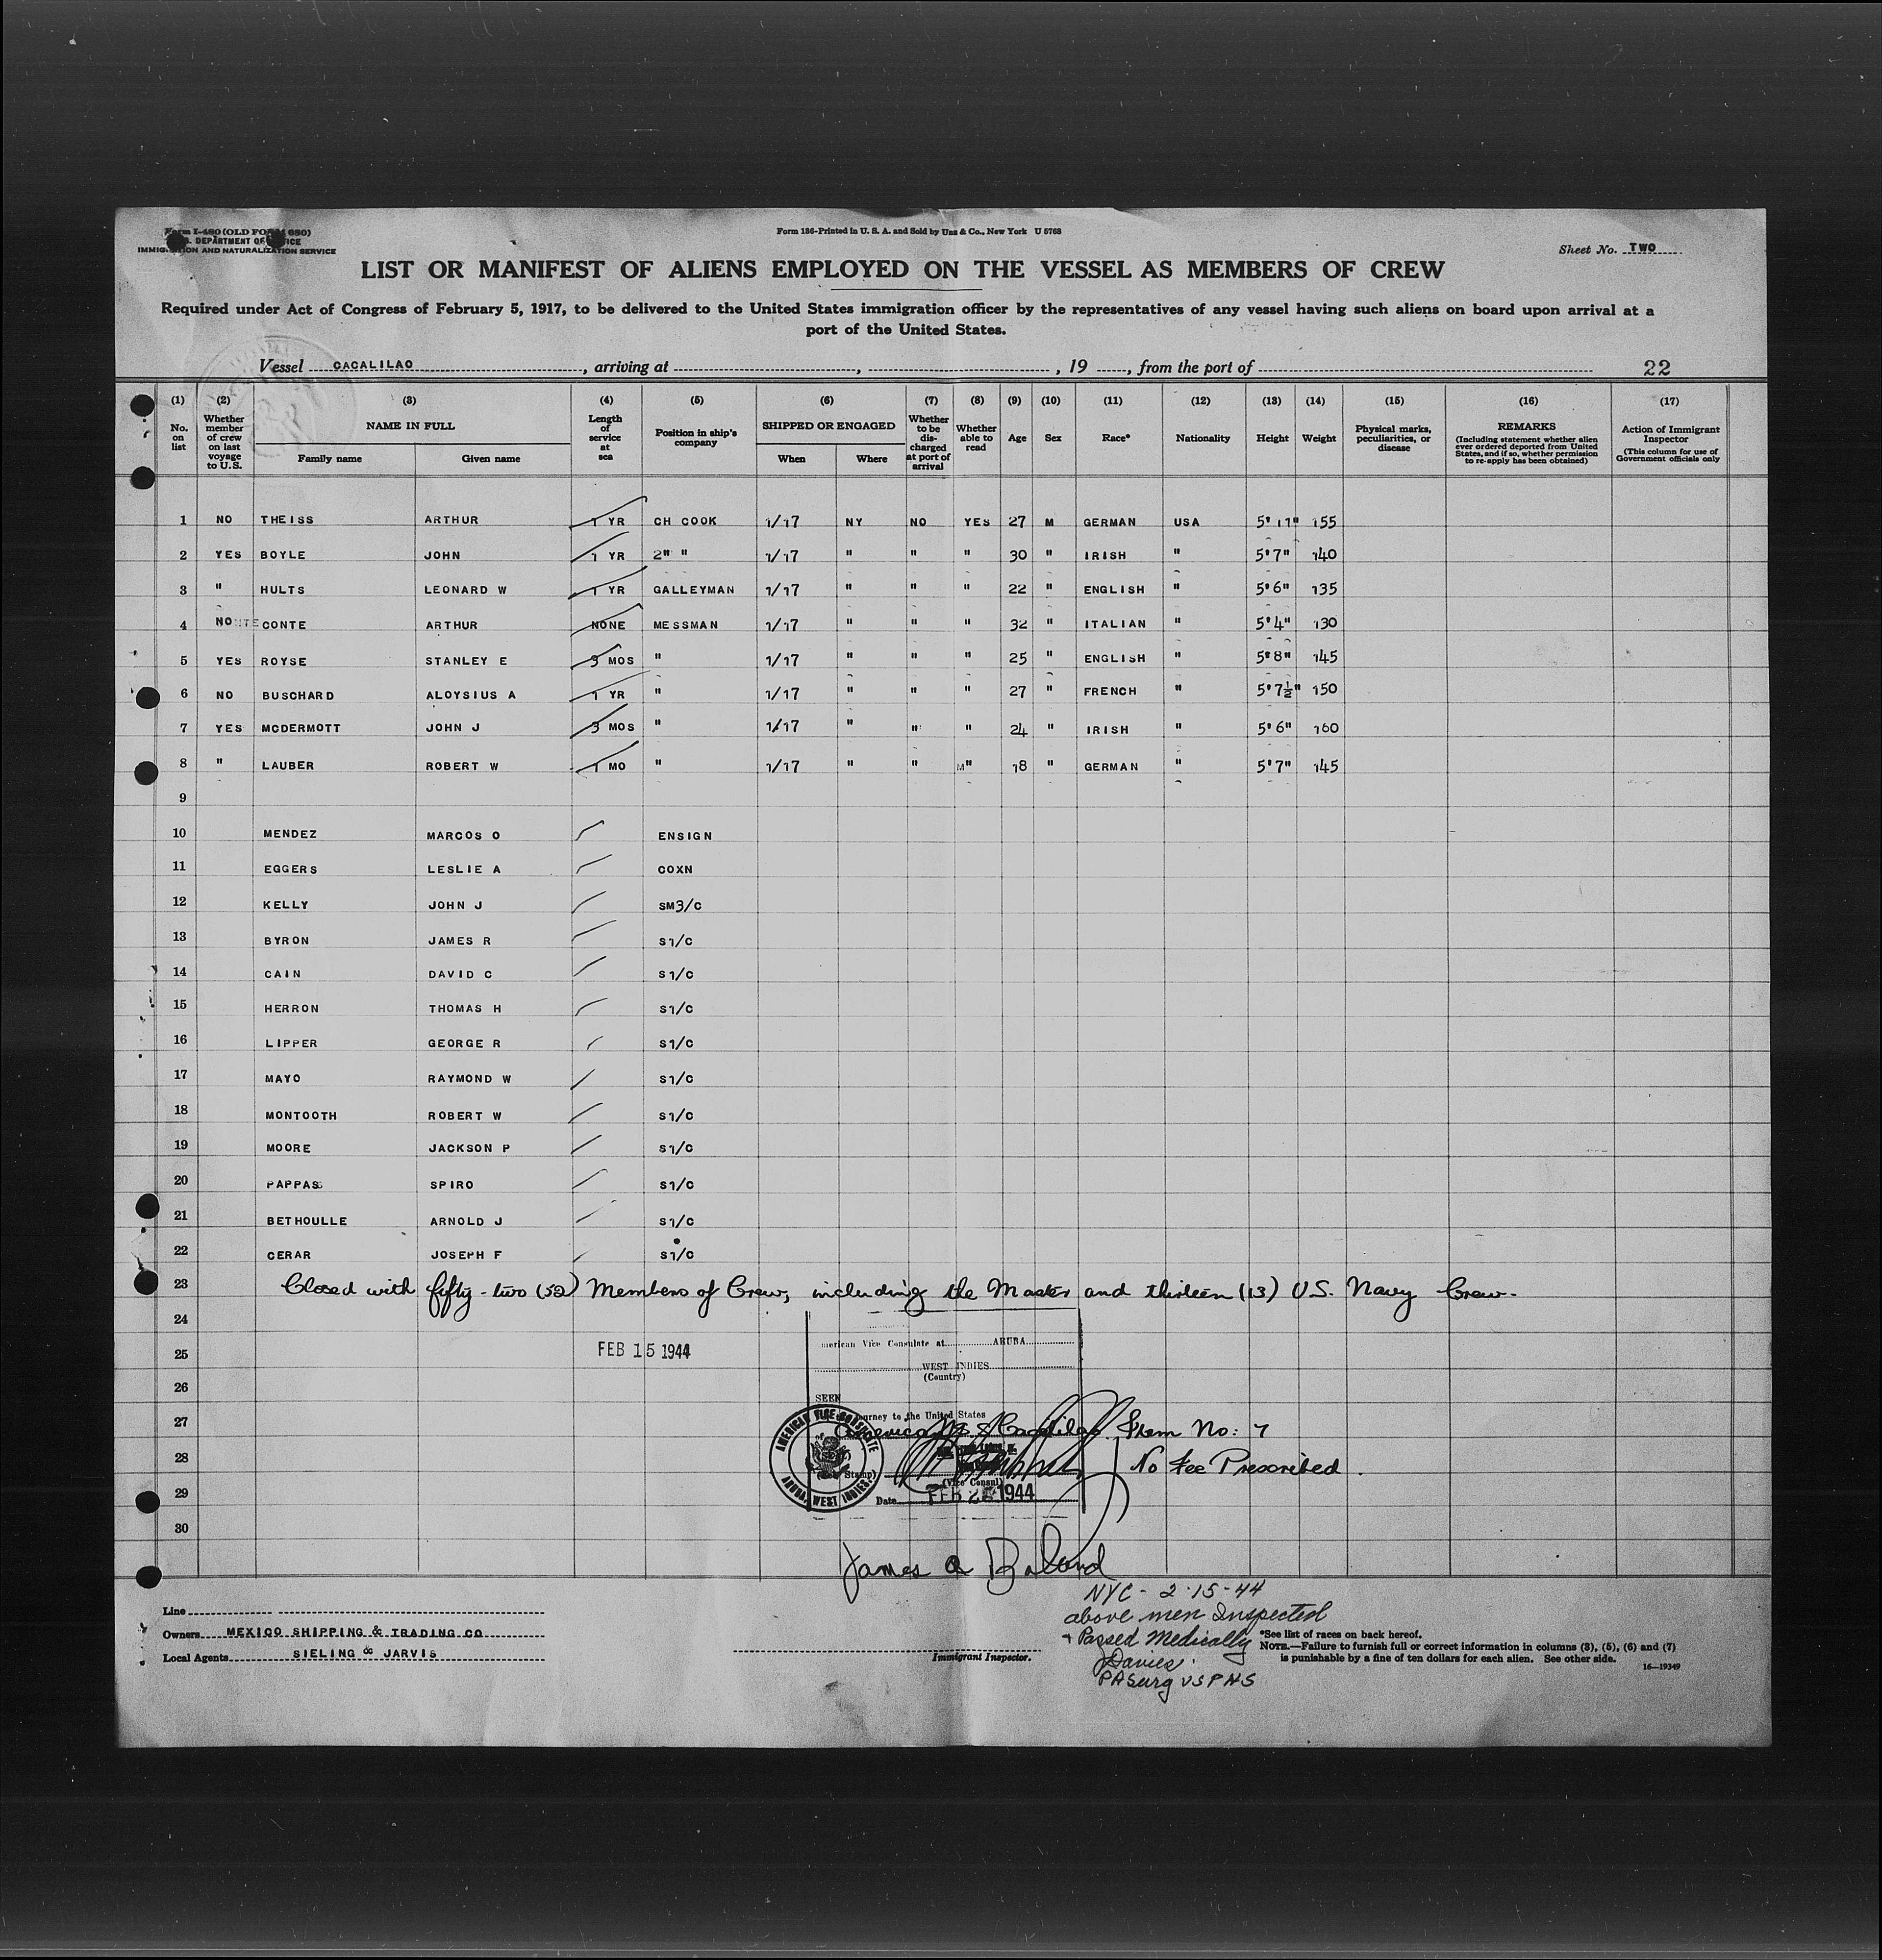 Form I-480 (OLD FORM 680)
U.S. DEPARTMENT OF JUSTICE
IMMIGRATION AND NATURALIZATION SERVICE
Form 136-Printed in U. S. A. and Sold by Unz & Co., New York U 5768
Sheet No. TWO
LIST OR MANIFEST OF ALIENS EMPLOYED ON THE VESSEL AS MEMBERS OF CREW
Required under Act of Congress of February 5, 1917, to be delivered to the United States immigration officer by the representatives of any vessel having such aliens on board upon arrival at a
port of the United States.
Vessel CACALILAO, arriving at , , 19 , from the port of 22
(1) No. on list
(2) Whether member of crew on last voyage to U.S.
(3) NAME IN FULL Family name Given name
(4) Length of service at sea
(5) Position in ship's company
(6) SHIPPED OR ENGAGED When Where
(7) Whether to be discharged at port of arrival
(8) Whether able to read
(9) Age
(10) Sex
(11) Race*
(12) Nationality
(13) Height
(14) Weight
(15) Physical marks, peculiarities, or disease
(16) REMARKS (Including statement whether alien ever ordered deported from United States, and if so, whether permission to re-apply has been obtained)
(17) Action of Immigrant Inspector (This column for use of Government officials only
1 NO THEISS ARTHUR 1 YR CH COOK 1/17 NY NO YES 27 M GERMAN USA 5' 11" 155
2 YES BOYLE JOHN 1 YR 2" " 1/17 " " " 30 " IRISH " 5'7" 140
3 " HULTS LEONARD W 1 YR GALLEYMAN 1/17 " " " 22 " ENGLISH " 5'6" 135
4 NO CONTE ARTHUR NONE MESSMAN 1/17 " " " 32 " ITALIAN " 5'4" 130
5 YES ROYSE STANLEY E 3 MOS " 1/17 " " " 25 " ENGLISH " 5'8" 145
6 NO BUSCHARD ALOYSIUS A 1 YR " 1/17 " " " 27 " FRENCH " 5'7½" 150
7 YES MCDERMOTT JOHN J 3 MOS " 1/17 " " " 24 " IRISH " 5'6" 160
8 " LAUBER ROBERT W 1 MO " 1/17 " " " 18 " GERMAN " 5'7" 145
9
10 MENDEZ MARCOS O ENSIGN
11 EGGERS LESLIE A COXN
12 KELLY JOHN J SM3/C
13 BYRON JAMES R S1/C
14 CAIN DAVID C S1/C
15 HERRON THOMAS H S1/C
16 LIPPER GEORGE R S1/C
17 MAYO RAYMOND W S1/C
18 MONTOOTH ROBERT W S1/C
19 MOORE JACKSON P S1/C
20 PAPPAS SPIRO S1/C
21 BETHOULLE ARNOLD J S1/C
22 CERAR JOSEPH F S1/C
23 Closed with fifty-two (52) Members of Crew, including the Master and thirteen (13) U.S. Navy Crew.
24
25
26
27
28
29
30
FEB 15 1944
merican Vice Consulate at ARUBA
WEST INDIES
(Country)
SEEN
urney to the United States
American M.S. Cacalilao
(Vice Consul)
Date FEB 2 1944
AMERICAN VICE CONSULATE
ARUBA, WEST INDIES
Item No: 7
No Fee Prescribed.
James A Boland
NYC - 2-15-44
above men Inspected
+ Passed Medically
Davies
PASurg USPHS
Line
Owners MEXICO SHIPPING & TRADING CO
Local Agents SIELING & JARVIS
Immigrant Inspector.
*See list of races on back hereof.
NOTE.—Failure to furnish full or correct information in columns (3), (5), (6) and (7)
is punishable by a fine of ten dollars for each alien. See other side.
16—19349